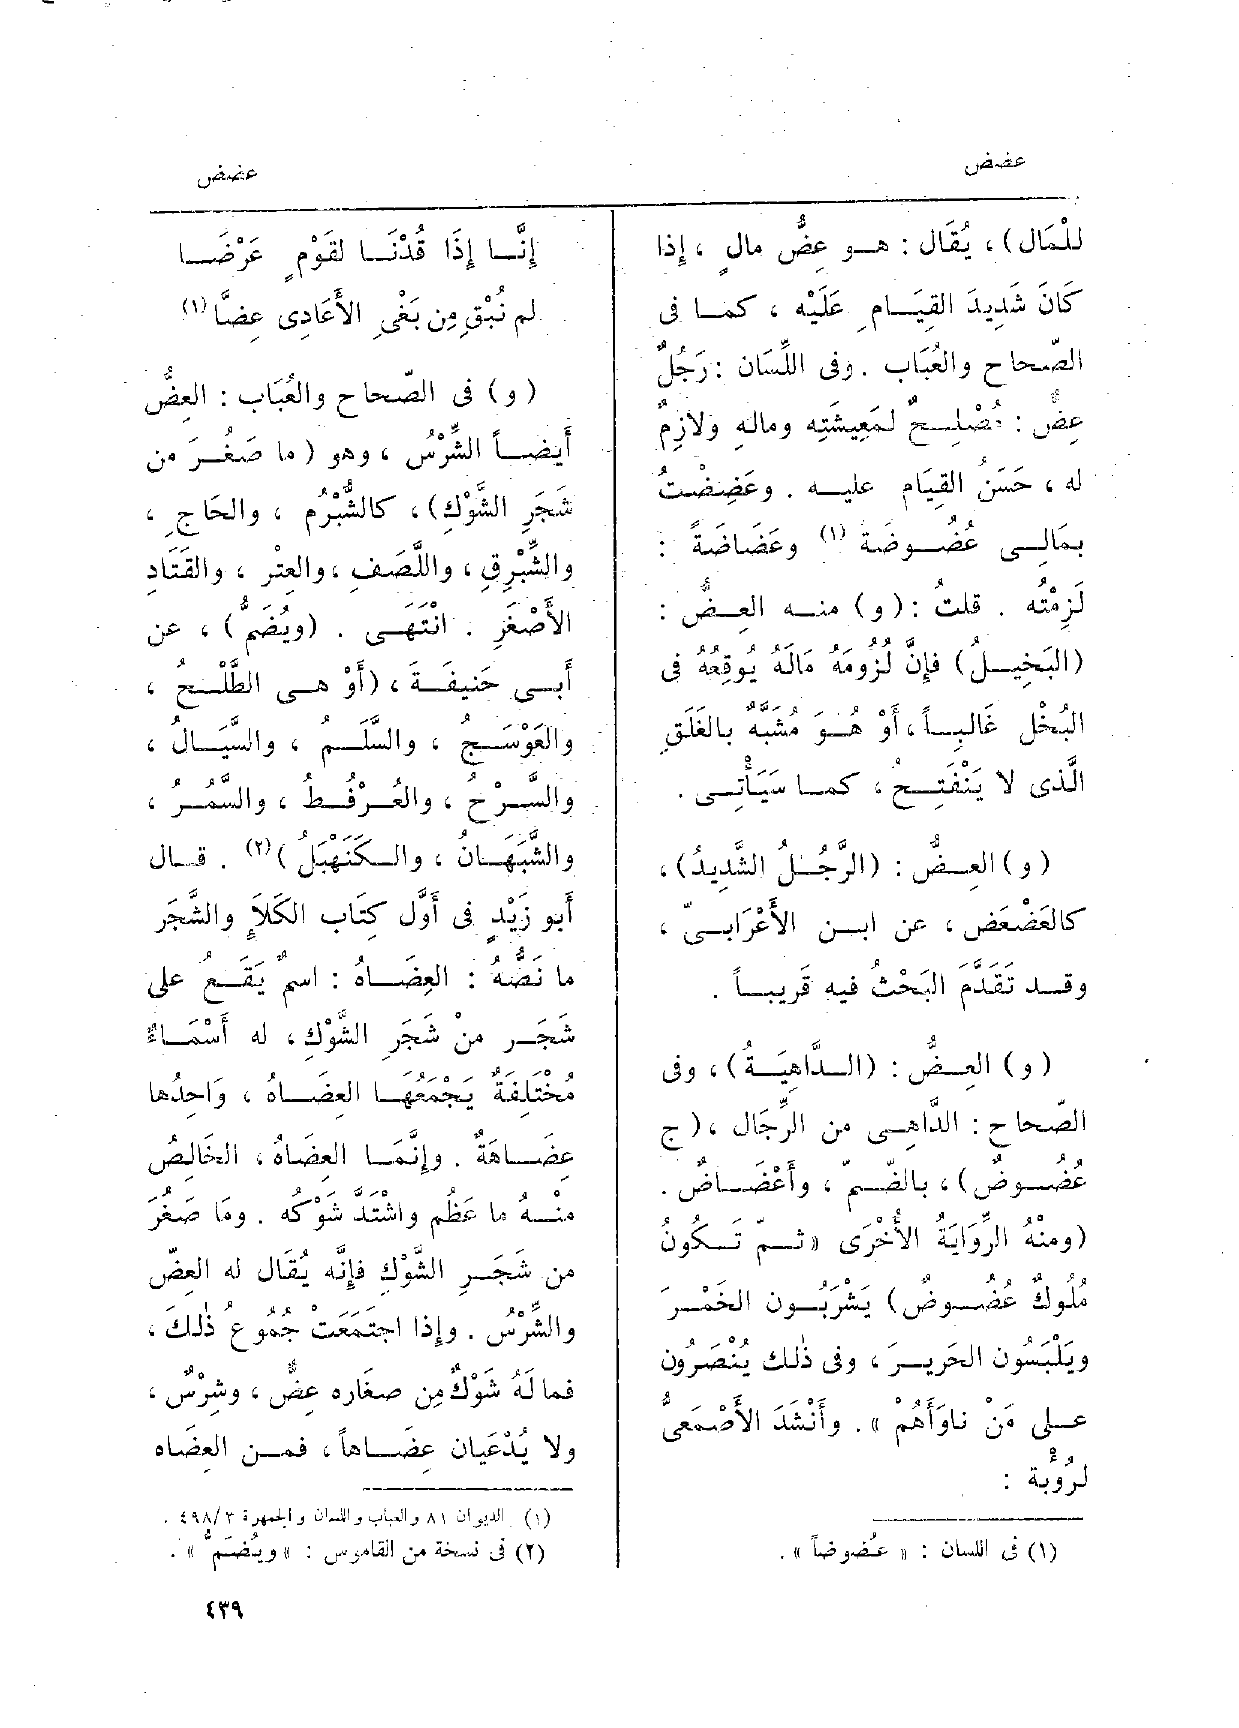 عضض
عضض
للْمَال) ، يُقَال : هـو عِضُّ مالٍ ، إذا
كَانَ شَدِيدَ القِيَـامِ عَلَيْه ، كمـا فى
الصّحاح والعُبَاب . وفى اللِّسَان : رَجُلٌ
عِضٌّ : مُصْلِـحٌ لمَعِيشَتِه ومالِه ولازِمٌ
له ، حَسَنُ القِيَامِ عليـه . وعَضِضْتُ
بمَالِـى عُضُـوضَةً (١) وعَضَاضَةً :
لَزِمْتُه . قلتُ : (و) منـه العِـضُّ :
(البَخِيـلُ) فإِنَّ لُزُومَهُ مَالَهُ يُوقِعُهُ فى
البُخْلِ غَالِبـاً ، أَوْ هُـوَ مُشَبَّهٌ بالغَلَقِ
الَّذى لا يَنْفَتِـحُ ، كمـا سَيَأْتِـى .
(و) العِـضُّ : (الرَّجُـلُ الشَّدِيدُ) ،
كالعَضْعَضِ ، عن ابـن الأَعْرَابـىّ ،
وقـد تَقَدَّمَ البَحْثُ فيه قَرِيبـاً .
(و) العِـضُّ : (الـدَّاهِيَـةُ) ، وفى
الصّحاح : الدَّاهِـى من الرِّجَال ، (ج
عُضُـوضٌ) ، بالضَّـمّ ، وأَعْضَـاضٌ .
(ومنْهُ الرِّوَايَةُ الأُخْرَى « ثـمّ تَـكُونُ
مُلُوكٌ عُضُـوضٌ) يَشْرَبُـون الخَمْـرَ
ويَلْبَسُون الحَرِيـرَ ، وفى ذٰلك يُنْصَرُون
عـلى مَنْ ناوَأَهُم » . وأَنْشَدَ الأَصْمَعىُّ
لرُؤْبة :
(١) فى اللسان : « عُضوضاً » .
إنَّـا إذَا قُدْنَـا لقَوْمٍ عَرْضَـا
لم نُبْقِ مِن بَغْىِ الأَعَادِى عِضَّا (١)
(و) فى الصّحاح والعُبَاب : العِضُّ
أَيضـاً الشِّرْسُ ، وهو (ما صَغُـرَ من
شَجَرِ الشَّوْك) ، كالشُّبْرُمِ ، والحَاجِ ،
والشِّبْرِقِ ، واللَّصَفِ ، والعِتْرِ ، والقَتَادِ
الأَصْغَرِ . انْتَهَـى . (ويُضَمُّ) ، عن
أَبـى حَنِيفَـةَ ، (أَوْ هـى الطَّلْـحُ ،
والعَوْسَـجُ ، والسَّلَـمُ ، والسَّيَـالُ ،
والسَّـرْحُ ، والعُـرْفُـطُ ، والسَّمُـرُ ،
والشَّبَهَـانُ ، والـكَنَهْبَلُ ) (٢) . قـال
أبو زَيْدٍ فى أَوَّل كِتَاب الكَلَإِ والشَّجَر
ما نَصُّهُ : العِضَـاهُ : اسمٌ يَقَـع على
شَجَـرٍ منْ شَجَرِ الشَّوْك ، له أَسْمَـاءٌ
مُخْتَلِفَةٌ يَجْمَعُهَـا العِضَـاهُ ، وَاحِدُها
عِضَـاهَةٌ . وإِنَّمَـا العِضَاهُ ، الخَالِصُ
منْـهُ ما عَظُم واشْتَدَّ شَوْكُه . ومَا صَغُرَ
من شَجَـرِ الشَّوْكِ فإِنَّه يُقَال له العِضّ
والشِّرْسُ . وإذا اجتَمَعَت جُمُوعُ ذٰلكَ ،
فما لَهُ شَوْكٌ مِن صِغَارِه عِضٌّ ، وشِرْسٌ ،
ولا يُدْعَيَان عِضَـاهاً ، فمـن العِضَاه
(١) الديوان ٨١ والعباب واللسان والجمهرة ٣ / ٤٩٨ .
(٢) فى نسخة من القاموس : « ويُضَمُّ » .
٤٣٩